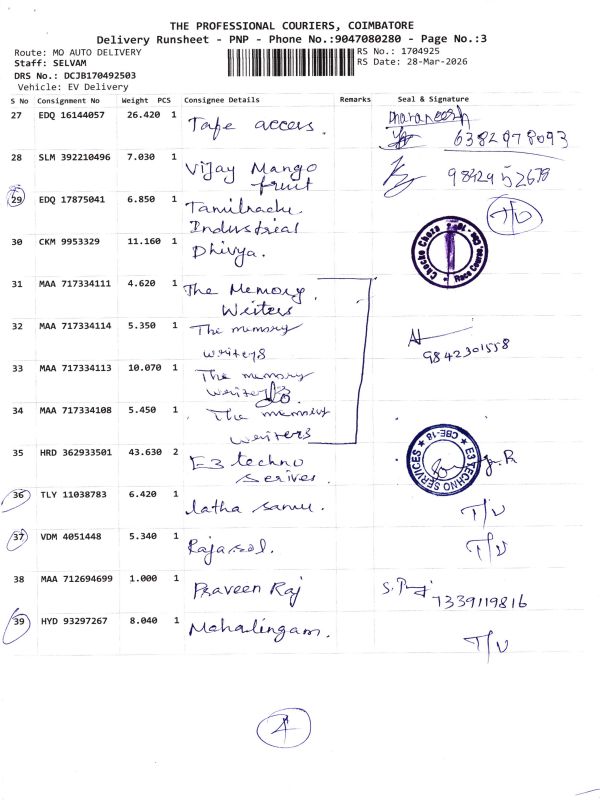 THE PROFESSIONAL COURIERS, COIMBATORE
Delivery Runsheet - PNP - Phone No.:9047080280 - Page No.:3
Route: MO AUTO DELIVERY
RS No.: 1704925
Staff: SELVAM
RS Date: 28-Mar-2026
DRS No.: DCJB170492503
Vehicle: EV Delivery
S No Consignment No Weight PCS Consignee Details Remarks Seal & Signature
27 EDQ 16144057 26.420 1 Tape access. Dharaneesh
6382978093
28 SLM 392210496 7.030 1 Vijay Mango
fruit
9842952678
29 EDQ 17875041 6.850 1 Tamilnadu
Industrial
T/U
30 CKM 9953329 11.160 1 Dhivya.
Race Course
31 MAA 717334111 4.620 1 The Memory
Writers
32 MAA 717334114 5.350 1 The memory
writers
9842301558
33 MAA 717334113 10.070 1 The memory
writers
34 MAA 717334108 5.450 1 The memory
writers
35 HRD 362933501 43.630 2 E3 techno
Serives.
E3 TECHNO SERVICES CBE-18
36 TLY 11038783 6.420 1 latha
T/U
37 VDM 4051448 5.340 1
T/U
38 MAA 712694699 1.000 1 Praveen Raj
7339119816
39 HYD 93297267 8.040 1 Mahalingam.
T/U
4